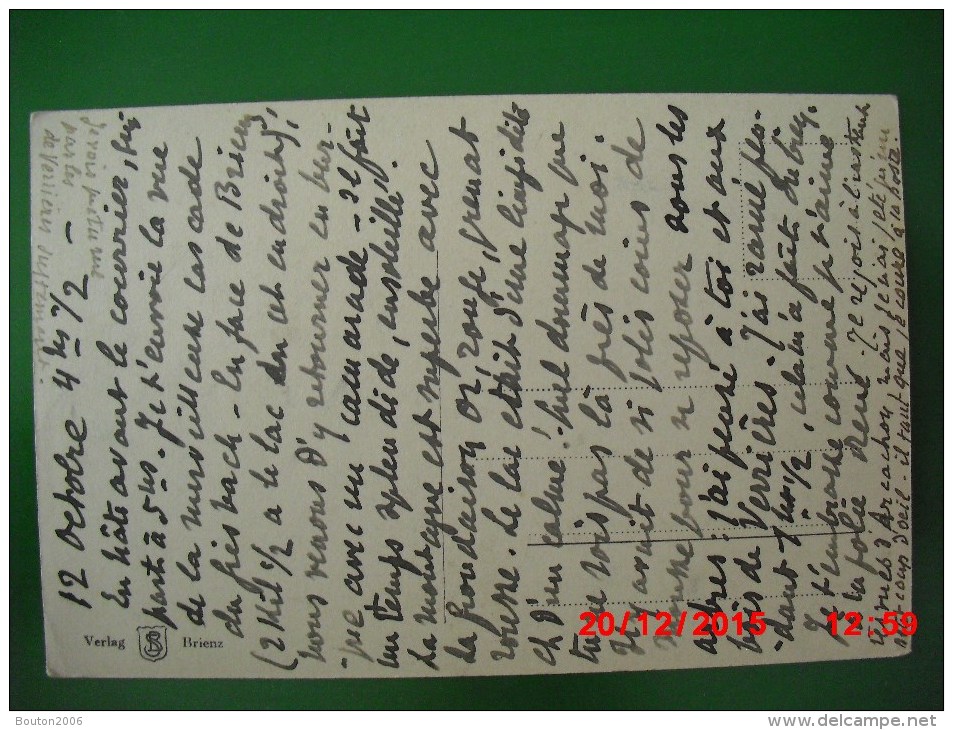 12 Octobre 4 hs 1/2 –
En hâte avant le courrier, qui
part à 5 hs. Je t'envoie la vue
de la merveilleuse cascade
du Giesbach – En face de Brienz
(2 Kil 1/2 a le lac en cet endroit),
nous venons d'y retourner en bar-
-que avec un camarade – Il fait
un temps splendide, ensoleillé.
La montagne est superbe avec
sa frondaison or, rouge, grenat
rousse. Le lac était d'une limpidité
et d'un calme! Quel dommage que
tu ne sois pas là près de moi.
Il y avait de si jolis coins de
mousse pour se reposer sous les
arbres: j'ai pensé à toi et aux
bois de Verrières. J'ai ramé pen-
-dant 1 hs 1/2, cela m'a fait du bien.
Je t'embrasse comme je t'aime
à la folie René. Je reçois à l'instant
vues d'Arcachon mais je n'ai jeté qu'un
coup d'œil – il faut que je coure à la poste.
Je vois
par les
de Verrières
Verlag
SR
Brienz
20/12/2015 12:59
Bouton2006
delcampe.net